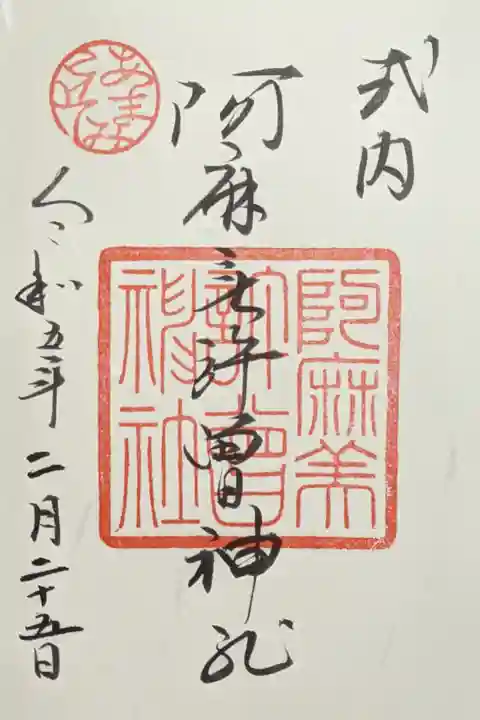 式内
阿麻美許曾神社
令和五年二月二十五日
阿麻美
許曾
神社
あまみ